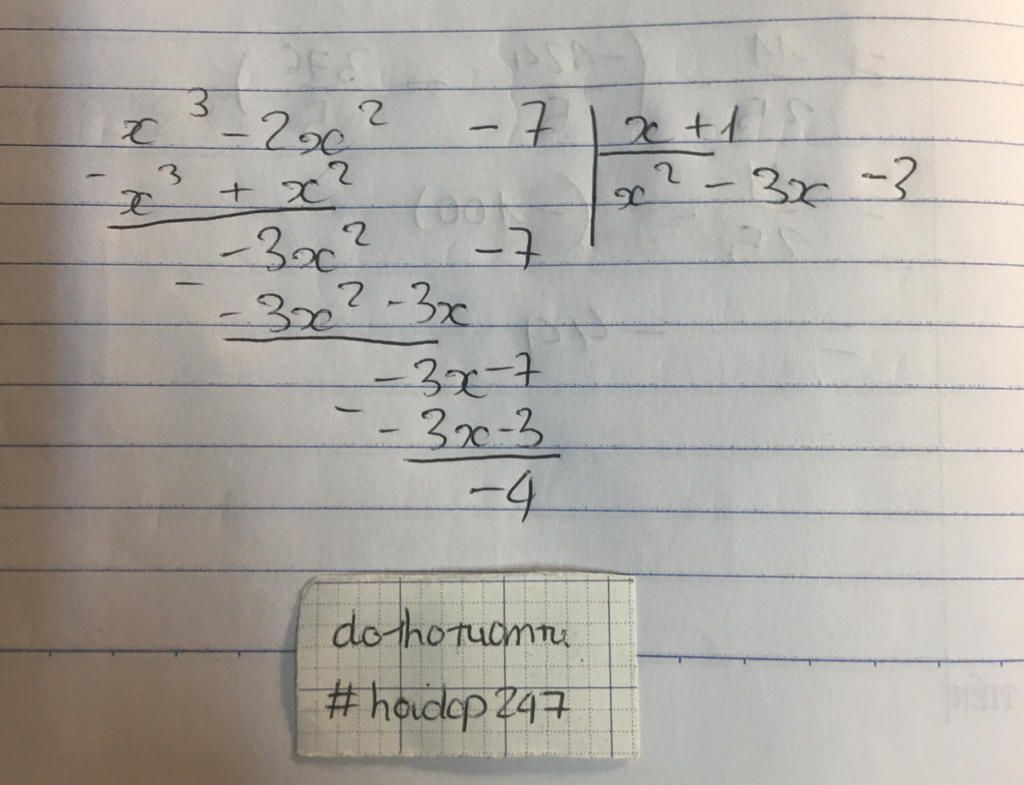 x³ - 2x² - 7 | x + 1
- x³ + x² | x² - 3x - 3
-3x² - 7
- -3x² - 3x
-3x - 7
- -3x - 3
-4
#hoidap247